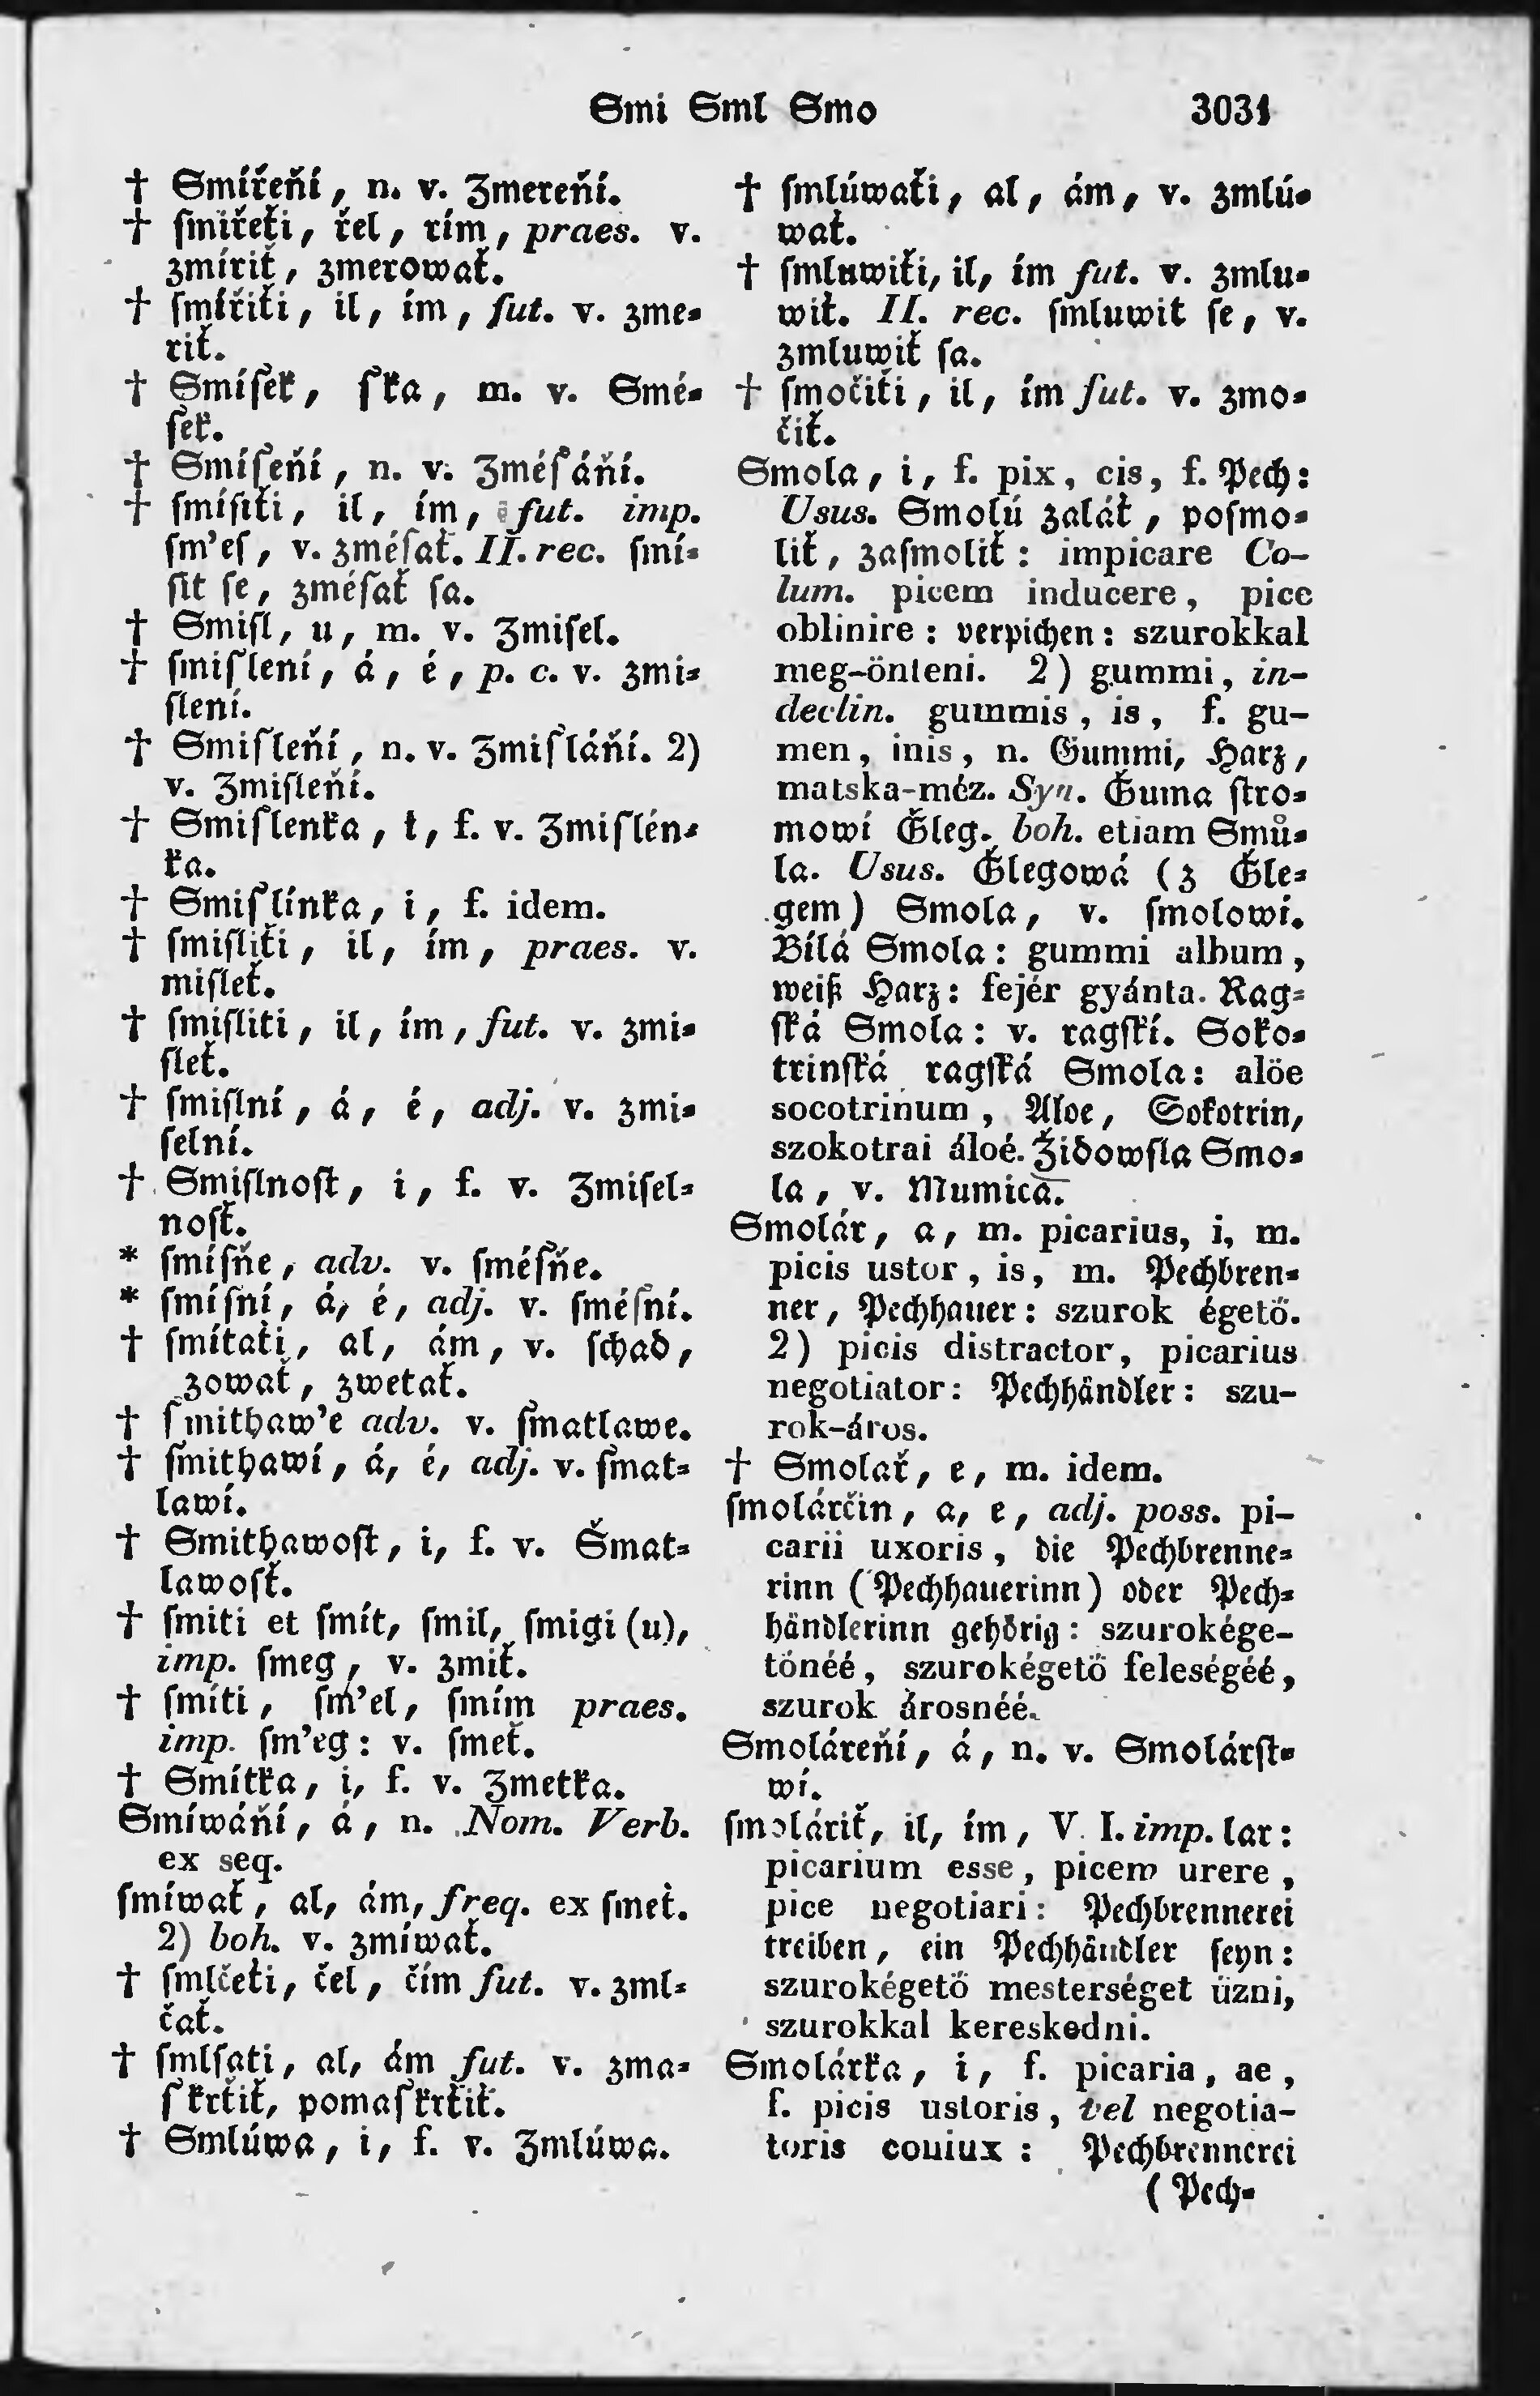 Smi Sml Smo 3031
† Smířeňí, n. v. Zmereňí.
† ſmířeťi, řel, rím, praes. v.
zmíriť, zmerowať.
† ſmířiťi, il, ím, fut. v. zme-
riť.
† Smíſek, ſka, m. v. Smé-
ſek.
† Smíſeňí, n. v. Zméſáňí.
† ſmíſiťi, il, ím, fut. imp.
ſm'eſ, v. zméſať. II. rec. ſmí-
ſit ſe, zméſať ſa.
† Smiſl, u, m. v. Zmiſel.
† ſmiſlení, á, é, p. c. v. zmi-
ſlení.
† Smiſleňí, n. v. Zmiſláňí. 2)
v. Zmiſleňí.
† Smiſlenka, i, f. v. Zmiſlén-
ka.
† Smiſlínka, i, f. idem.
† ſmiſliťi, il, ím, praes. v.
miſleť.
† ſmiſliti, il, ím, fut. v. zmi-
ſleť.
† ſmiſlní, á, é, adj. v. zmi-
ſelní.
† Smiſlnoſt, i, f. v. Zmiſel-
noſť.
* ſmíſňe, adv. v. ſméſňe.
* ſmíſní, á, é, adj. v. ſméſní.
† ſmítaťi, al, ám, v. ſchad,
zowať, zwetať.
† ſmithaw'e adv. v. ſmatlawe.
† ſmithawí, á, é, adj. v. ſmat-
lawí.
† Smithawoſt, i, f. v. Šmat-
lawoſť.
† ſmiti et ſmít, ſmil, ſmigi (u),
imp. ſmeg, v. zmiť.
† ſmíti, ſm'el, ſmím praes.
imp. ſm'eg: v. ſmeť.
† Smítka, i, f. v. Zmetka.
Smíwáňí, á, n. Nom. Verb.
ex seq.
ſmíwať, al, ám, freq. ex ſmeť.
2) boh. v. zmíwať.
† ſmlčeťi, čel, čím fut. v. zml-
čať.
† ſmlſati, al, ám fut. v. zma-
ſkrťiť, pomaſkrťiť.
† Smlúwa, i, f. v. Zmlúwa.
† ſmlúwaťi, al, ám, v. zmlú-
wať.
† ſmluwiťi, il, ím fut. v. zmlu-
wiť. II. rec. ſmluwit ſe, v.
zmluwiť ſa.
† ſmočiťi, il, ím fut. v. zmo-
čiť.
Smola, i, f. pix, cis, f. Pech:
Usus. Smolú zaláť, poſmo-
liť, zaſmoliť: impicare Co-
lum. picem inducere, pice
oblinire: verpichen: szurokkal
meg-önteni. 2) gummi, in-
declin. gummis, is, f. gu-
men, inis, n. Gummi, Harz,
matska-méz. Syn. Ǧuma ſtro-
mowí Ǧleg. boh. etiam Smů-
la. Usus. Ǧlegowá (z Ǧle-
gem) Smola, v. ſmolowí.
Bílá Smola: gummi album,
weiß Harz: fejér gyánta. Rag-
ſká Smola: v. ragſkí. Soko-
trinſká ragſká Smola: alöe
socotrinum, Aloe, Sokotrin,
szokotrai áloé. Židowſla Smo-
la, v. Mumica.
Smolár, a, m. picarius, i, m.
picis ustor, is, m. Pechbren-
ner, Pechhauer: szurok égető.
2) picis distractor, picarius
negotiator: Pechhändler: szu-
rok-áros.
† Smolař, e, m. idem.
ſmolárčin, a, e, adj. poss. pi-
carii uxoris, die Pechbrenne-
rinn (Pechhauerinn) oder Pech-
händlerinn gehörig: szurokége-
tőnéé, szurokégető feleségéé,
szurok árosnéé.
Smoláreňí, á, n. v. Smolárſt-
wí.
ſmoláriť, il, ím, V. I. imp. lar:
picarium esse, picem urere,
pice negotiari: Pechbrennerei
treiben, ein Pechhändler ſeyn:
szurokégető mesterséget űzni,
szurokkal kereskedni.
Smolárka, i, f. picaria, ae,
f. picis ustoris, vel negotia-
toris coniux: Pechbrennerei
(Pech-